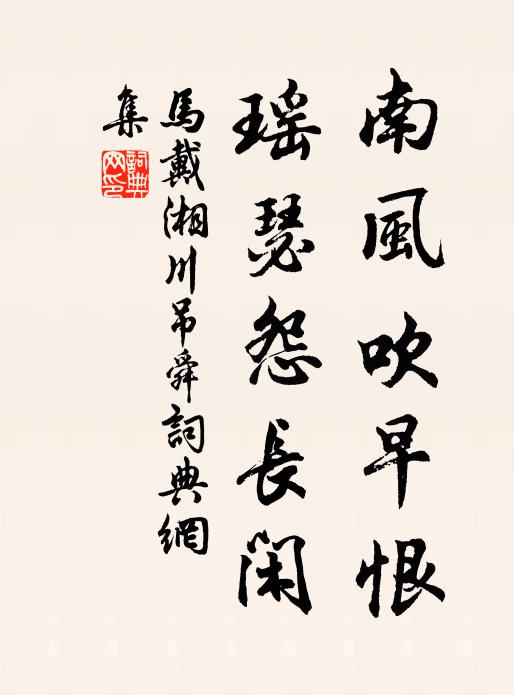 南風吹早恨
瑶瑟怨長閑
馬戴湘川吊舜詞典網
集
詞典
网印